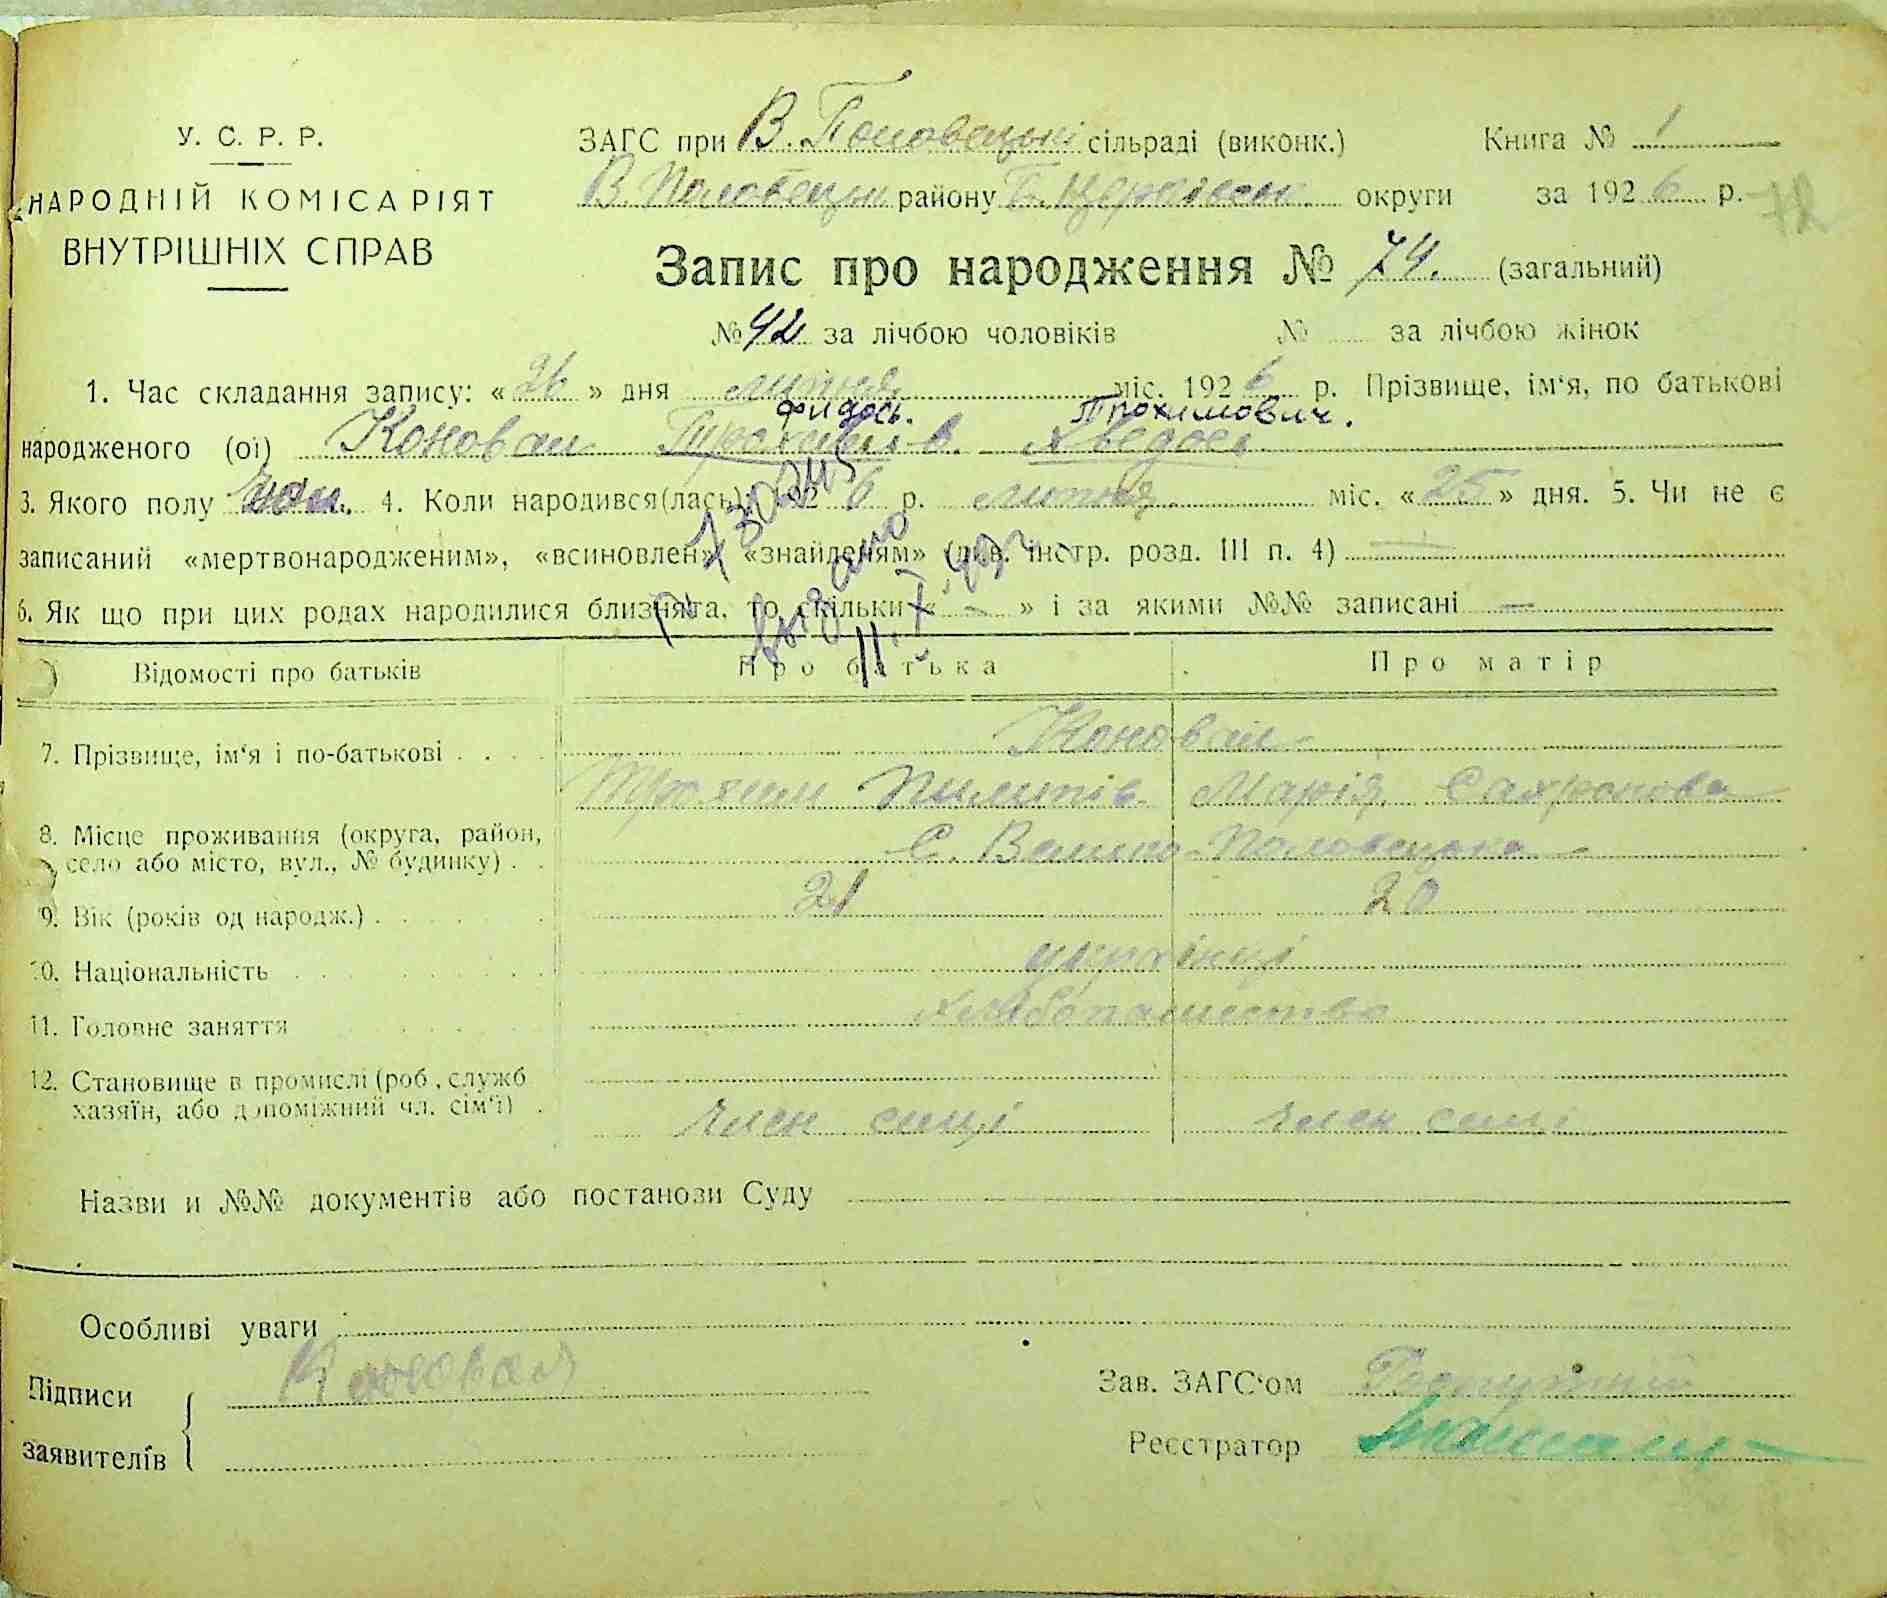 У. С. Р. Р.
НАРОДНІЙ КОМІСАРІЯТ
ВНУТРІШНІХ СПРАВ
ЗАГС при В. Половецькі сільраді (виконк.) Книга № 1
В. Половецьк району Б. Церківськ. округи за 1926 р.
72
Запис про народження № 74. (загальний)
№ 42 за лічбою чоловіків № за лічбою жінок
1. Час складання запису: « 26 » дня липня міс. 1926 р. Прізвище, ім'я, по батькові
Фидось. Трохимович.
народженого (ої) Коновал Трохимів. Хведось
3. Якого полу чол. 4. Коли народився(лась): 1926 р. липня міс. « 25 » дня. 5. Чи не є
записаний «мертвонародженим», «всиновлен», «знайденям» (див. інстр. розд. III п. 4) —
6. Як що при цих родах народилися близнята, то скільки « - » і за якими №№ записані —
выдано
Відомості про батьків Про батька Про матір
7. Прізвище, ім'я і по-батькові . . . . Коновал
Трохим Пилипів Марія Сахронова
8. Місце проживання (округа, район,
село або місто, вул., № будинку) . . С. Велико-Половецьке
9. Вік (років од народж.) . 21 20
10. Національність українці
11. Головне заняття хліборобство
12. Становище в промислі (роб., служб
хазяїн, або допоміжний чл. сім'ї) . член семї член семї
Назви и №№ документів або постанови Суду
Особливі уваги
Підписи Коновал
заявителів
Зав. ЗАГС'ом
Реєстратор